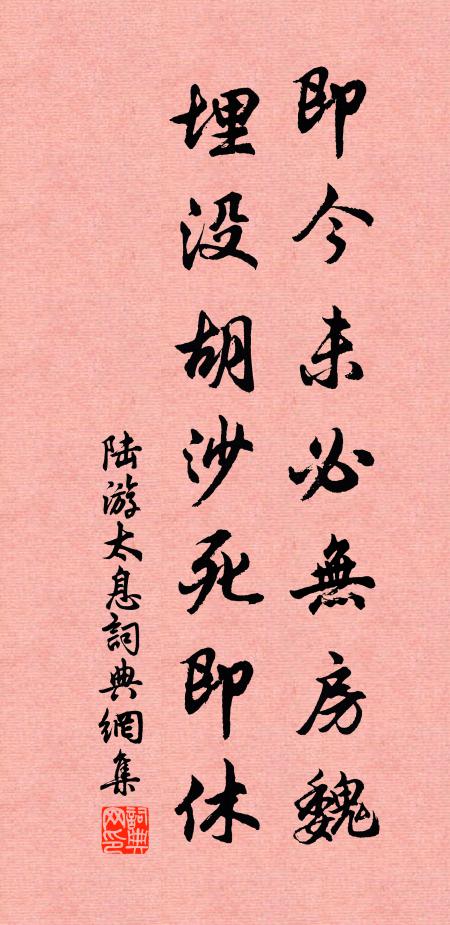 即今未必無房魏
埋没胡沙死即休
陆游太息詞典網集
詞典网印